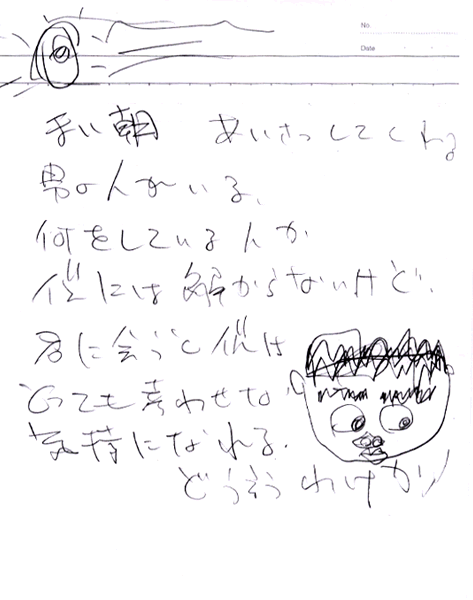 No.
Date
早い朝 あいさつしてくれる
男の人がいる、
何をしている人か
僕には解からないけど、
君に会うと僕は
とっても幸わせな
気持になれる、
どう言うわけか